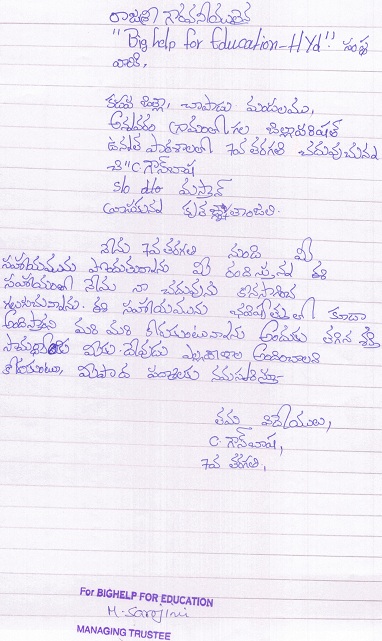 రాజశ్రీ గౌరవనీయులైన
"Big help for Education-HYd." సంస్థ
వారికి,
కడప జిల్లా, చాపాడు మండలము,
అన్నవరం గ్రామంలో గల జిల్లాపరిషత్
ఉన్నత పాఠశాలలో 7వ తరగతి చదువుచున్న
చి" C గౌస్ బాష
s/o d/o మస్తాన్
వ్రాయునది కృతజ్ఞతాంజలి.
నేను 7వ తరగతి నుండి మీ
సహాయమును పొందుతున్నాను మీ రందిస్తున్న ఈ
సహాయంతో నేను నా చదువును కొనసాగించ
గలుగుచున్నాను. ఈ సహాయమును భవిష్యత్తులో కూడా
అందిస్తారని మరి మరి కోరుకుంటున్నాను అందుకు తగిన శక్తి
సామర్థ్యాలను మీకు దేవుడు ఎల్లకాలం అందించాలని
కోరుకుంటూ, మీ పాద పద్మాలకు నమస్కరిస్తూ
తమ విధేయులు,
C గౌస్ బాష,
7వ తరగతి,
For BIGHELP FOR EDUCATION
M. Sarojini
MANAGING TRUSTEE